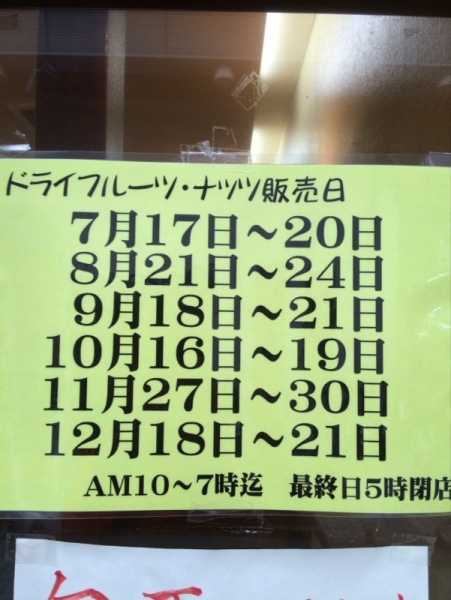 ドライフルーツ・ナッツ販売日
7月17日～20日
8月21日～24日
9月18日～21日
10月16日～19日
11月27日～30日
12月18日～21日
AM10～7時迄 最終日5時閉店